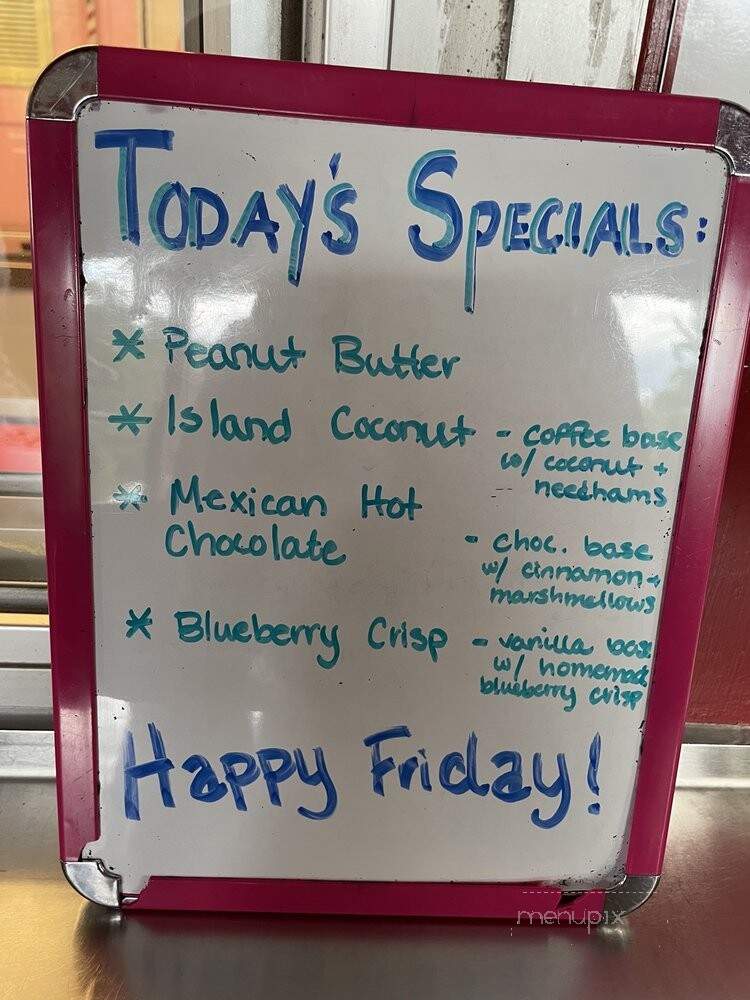 TODAY'S SPECIALS:
* Peanut Butter
* Island Coconut - coffee base
w/ coconut +
needhams
* Mexican Hot
Chocolate - choc. base
w/ cinnamon +
marshmellows
* Blueberry Crisp - vanilla base
w/ homemade
blueberry crisp
Happy Friday!
menupix